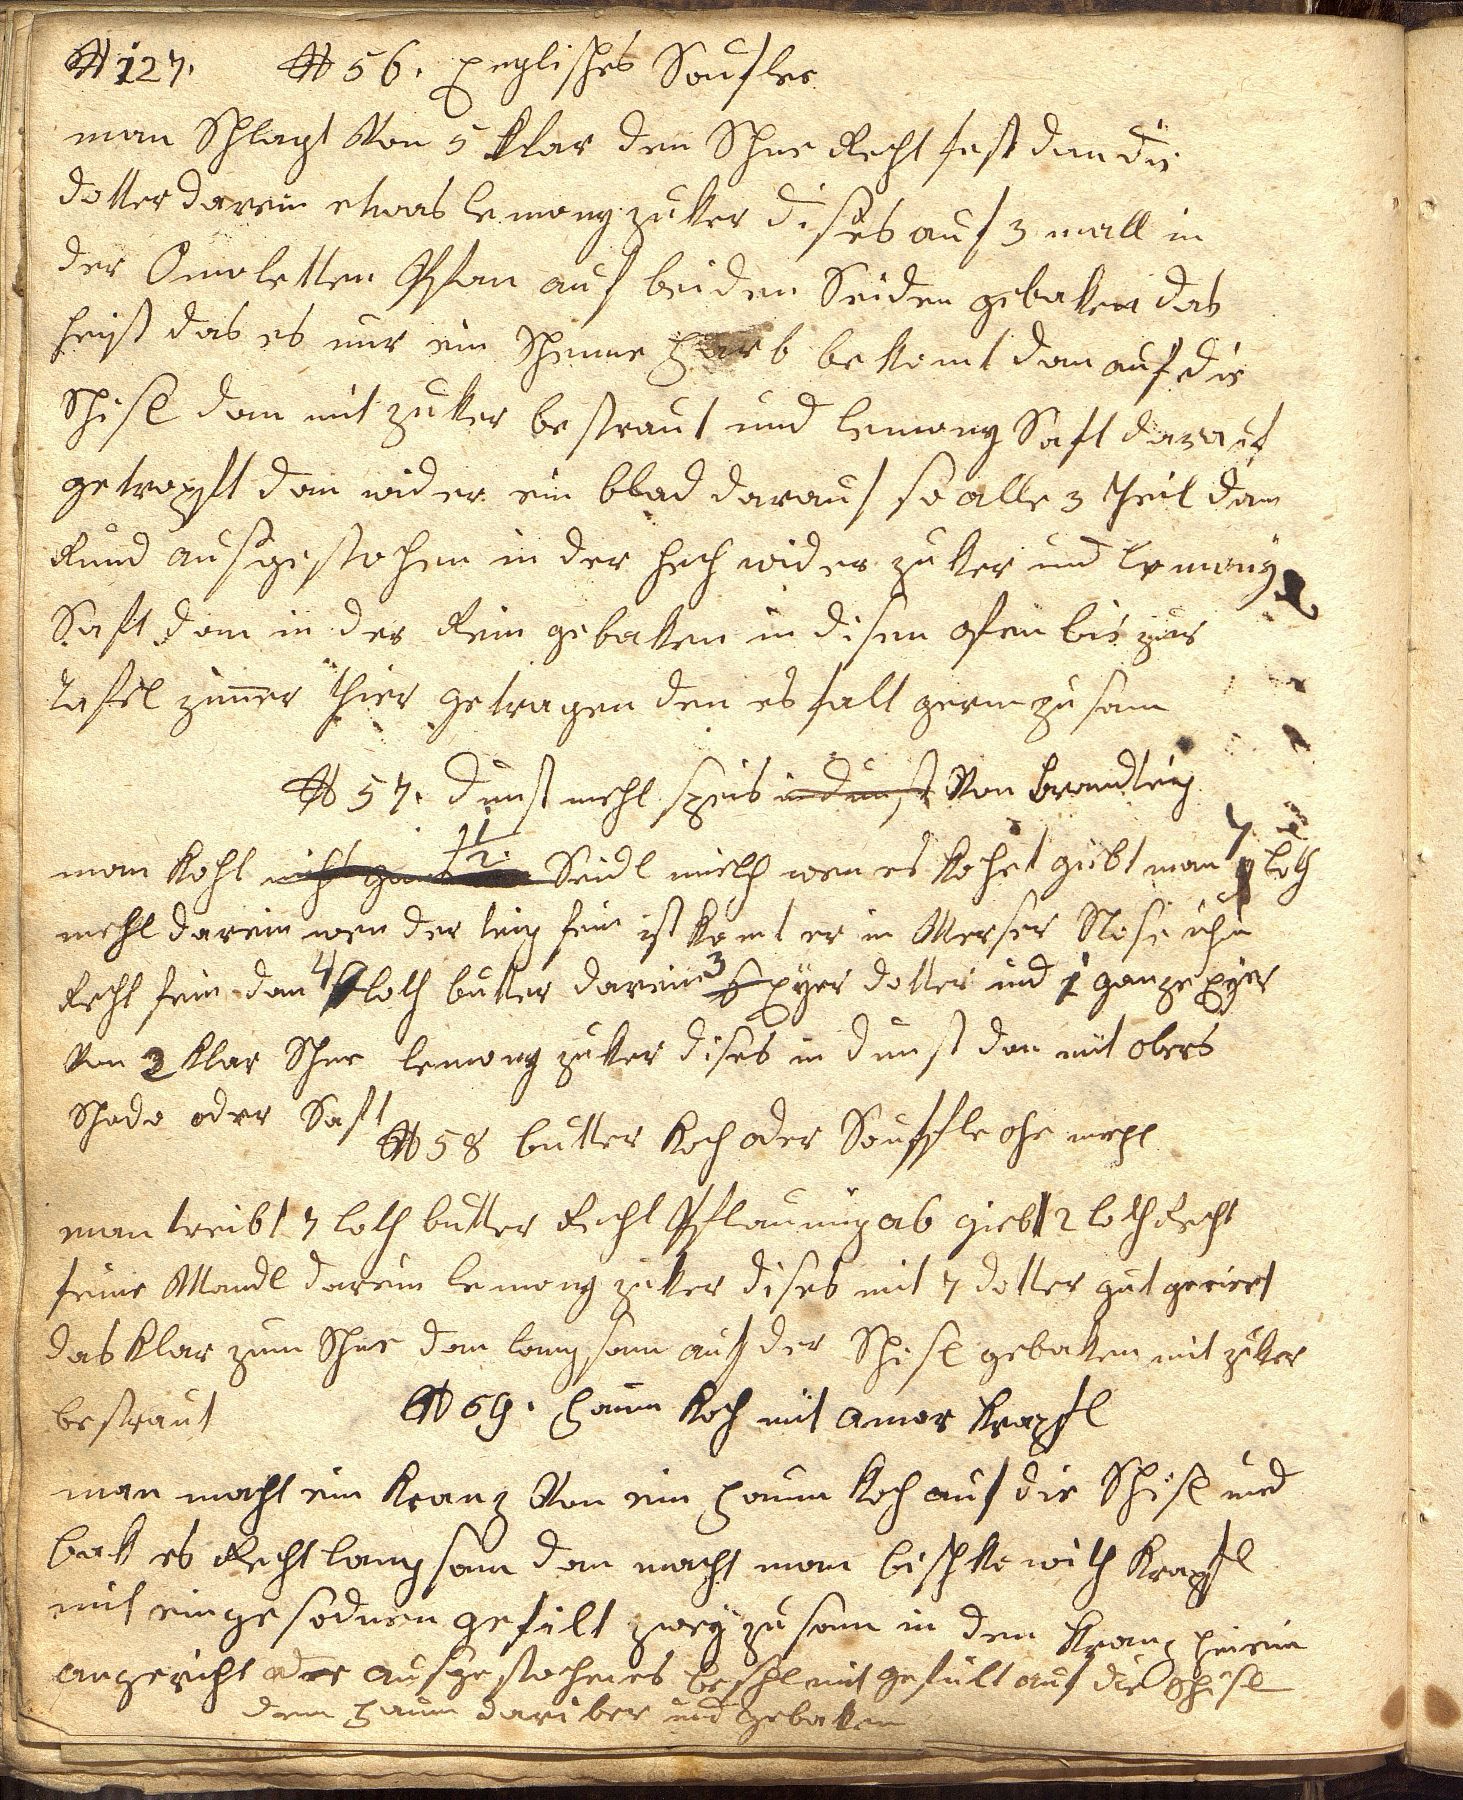 # 127. # 56. Englisches Soufler
man Schlagt Von 5 Klar den Schne Recht fest dan die
dotter darein etwas lemony zuker dises auf 3 mall in
der Omoletten Pfan auf beiden Seiden gebaken das
heist das es nur ein Schenne Farb bekomt dan auf die
Schisl dan mit zuker bestraut und lemony Saft darauf
getropft dan wider ein blad darauf so alle 3 theil dan
Rund ausgestochen in der hech wider zuker und lemony
Saft dan in der Rein gebaken in disen ofen bis zur
tafel zimer thier getragen den es falt gern zusam
# 57. dunst mehl speis Von brandteig
man Koht 1/2 Seidl milch wen es kohet giebt man 7 loth
mehl darein wen der teig fein ist komt er in Merser Stose ihn
Recht fein dan 4 loth butter darein 3 Eyer dotter und 1 ganze Eyer
Von 2 Klar Schne lemony zuker dises in dunst dan mit obers
Schodo oder Saft
# 58 butter Koch oder Souffle ohe mehl
man treibt 7 loth butter Recht Pflaumig ab giebt 2 loth Recht
feine Mandl darein lemony zuker dises mit 7 dotter gut geriert
das Klar zum Schne dan langsam auf der Schisl gebaken mit zuker
bestraut
# 59. Faum Koch mit amor Krapfl
man macht ein Kranz Von ein Faum Koch auf die Schisl und
bak es Recht langsam dan macht man bischkowith Krapfl
mit eingesodnen gefilt zwey zusam in den Kranz hinein
angericht oder ausgestochenes mit gefült auf die Schisl
dem Faum dariber und gebaken